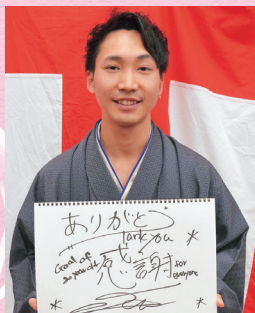 ありがとう
Tank you
Goal of
20 years old
感謝
for
everyone